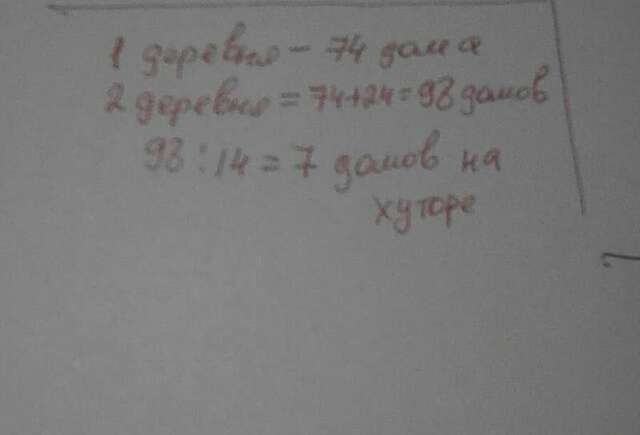 1 деревня - 74 дома
2 деревня = 74+24 = 98 домов
98 : 14 = 7 домов на
хуторе